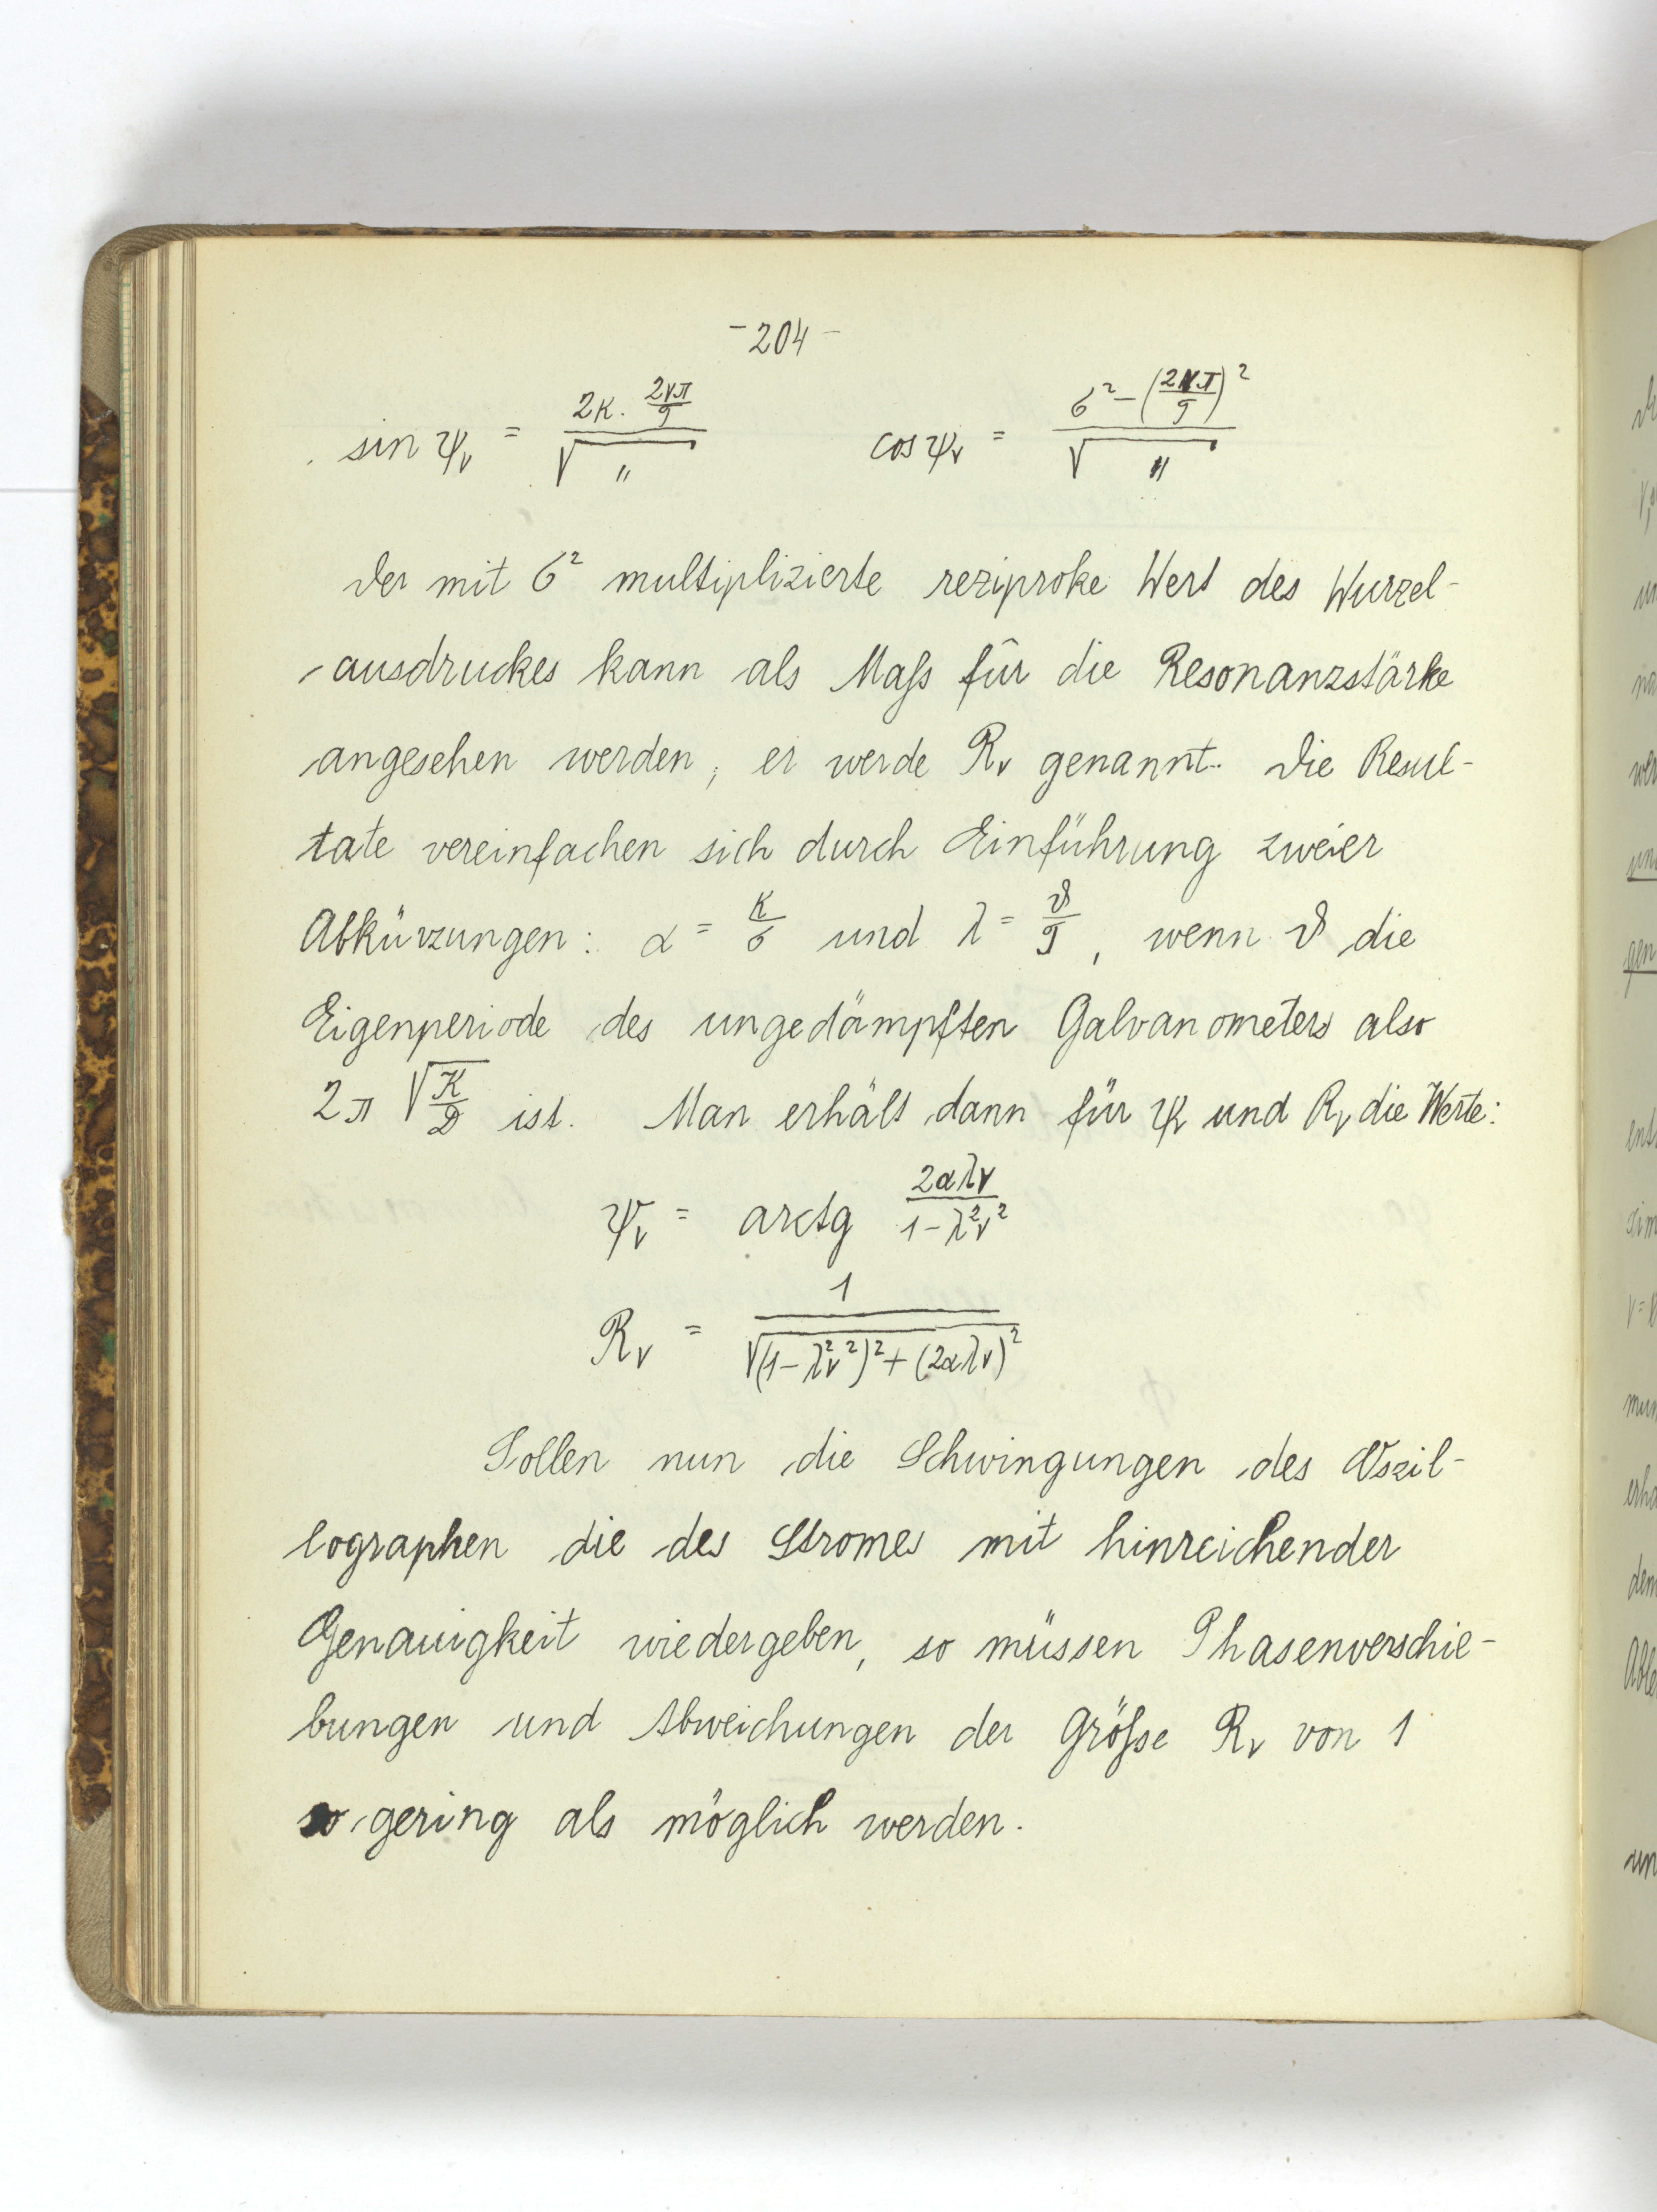 - 204 -
sin ψ_ν = (2κ · 2νπ/T) / √ " cos ψ_ν = (σ² - (2νπ/T)²) / √ "
Der mit σ² multiplizierte reziproke Wert des Wurzel-
ausdruckes kann als Maß für die Resonanzstärke
angesehen werden, er werde R_ν genannt. Die Resul-
tate vereinfachen sich durch Einführung zweier
Abkürzungen: α = κ/σ und λ = ϑ/T, wenn ϑ die
Eigenperiode des ungedämpften Galvanometers also
2π √(K/D) ist. Man erhält dann für ψ_ν und R_ν die Werte:
ψ_ν = arctg 2αλν / (1-λ²ν²)
R_ν = 1 / √((1-λ²ν²)² + (2αλν)²)
Sollen nun die Schwingungen des Oszil-
lographen die des Stromes mit hinreichender
Genauigkeit wiedergeben, so müssen Phasenverschie-
bungen und Abweichungen der Größe R_ν von 1
so gering als möglich werden.